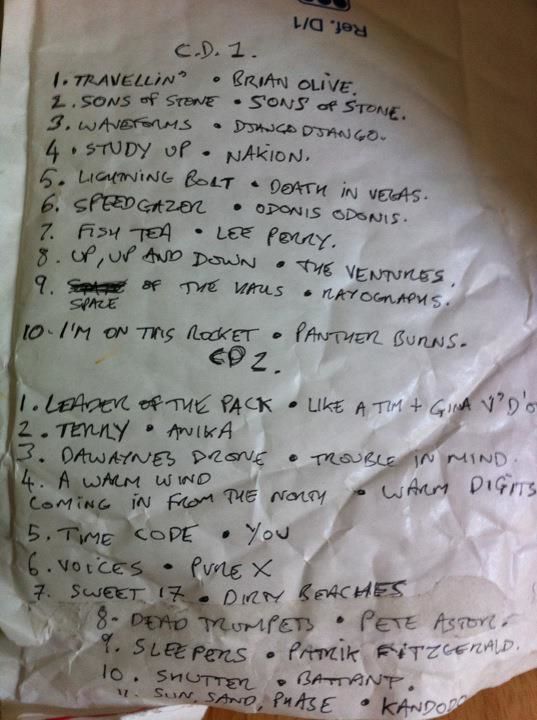 Ref. D/1
C.D.1.
1. TRAVELLIN' • BRIAN OLIVE.
2. SONS OF STONE • SONS OF STONE.
3. WAVEFORMS • DJANGO DJANGO.
4. STUDY UP • NAKION.
5. LIGHTNING BOLT • DEATH IN VEGAS.
6. SPEEDGAZER • ODONIS ODONIS.
7. FISH TEA • LEE PERRY.
8. UP, UP AND DOWN • THE VENTURES.
9. OF THE HALLS • RAYOGRAPHS.
SPACE
10. I'M ON THIS ROCKET • PANTHER BURNS.
CD 2.
1. LEADER OF THE PACK • LIKE A TIM + GINA V"D'O
2. TERRY • ANIKA
3. DAWAYNES DRONE • TROUBLE IN MIND.
4. A WARM WIND
COMING IN FROM THE NORTH • WARM DIGITS
5. TIME CODE • YOU
6. VOICES • PURE X
7. SWEET 17 • DIRTY BEACHES
8. DEAD TRUMPETS • PETE ASTOR.
9. SLEEPERS • PATRIK FITZGERALD.
10. SHUTTER • BATTANT.
11. SUN, SAND, PHASE • KANDODO